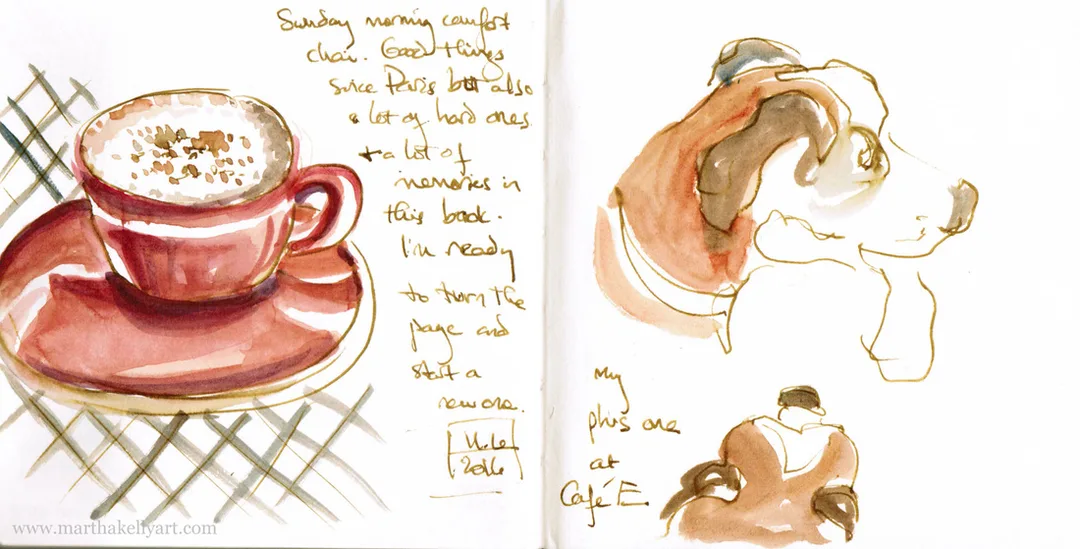 Sunday morning comfort
chai. Good things
since Paris but also
a lot of hard ones
+ a lot of
memories in
this book.
I'm ready
to turn the
page and
start a
new one.
2016
My
plus one
at
Café E.
www.marthakellyart.com